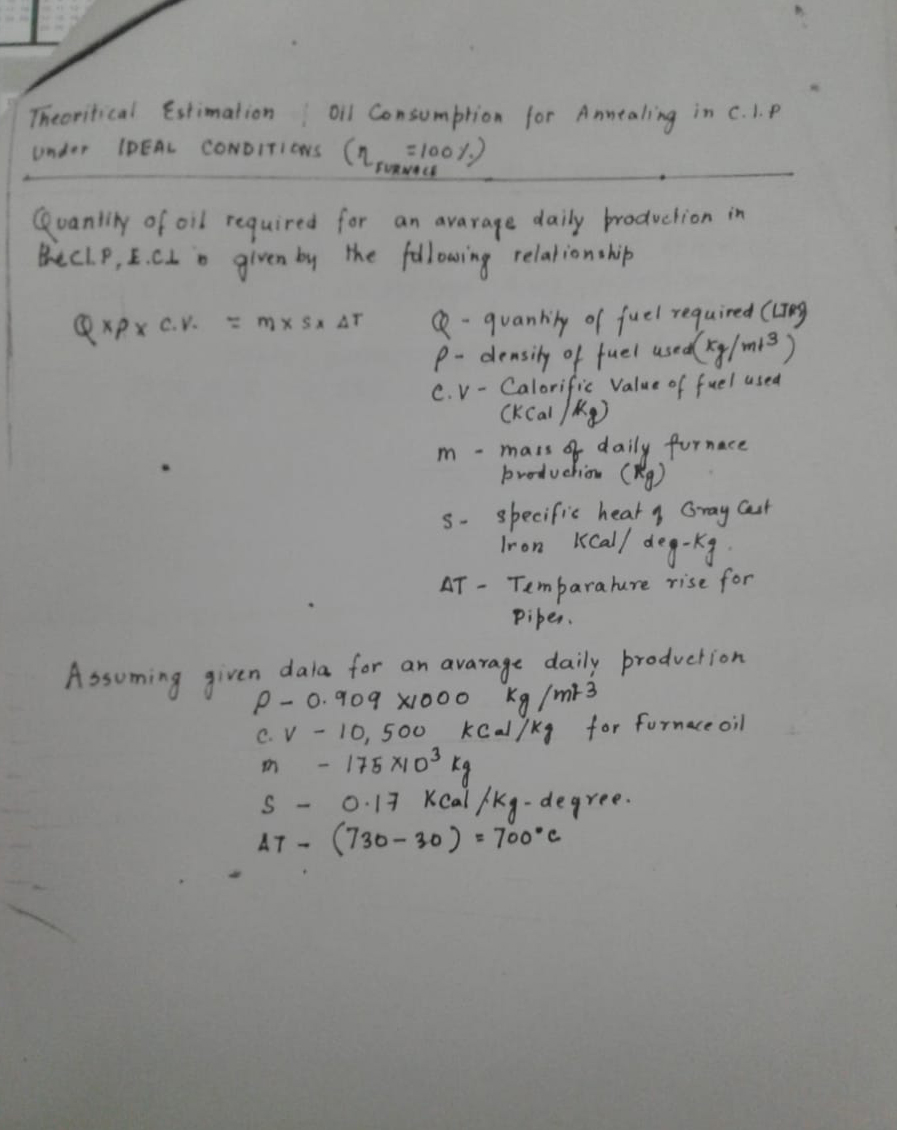 Theoritical Estimation : Oil Consumption for Annealing in C.I.P
under IDEAL CONDITIONS (η FURNACE =100%)
Quantity of oil required for an avarage daily production in
the C.I.P, E.C.L is given by the following relationship
Q x ρ x C.V. = m x s x ΔT
Q - quantity of fuel required (LTRS)
ρ - density of fuel used (Kg/mt3)
C.V - Calorific Value of fuel used
(KCal/Kg)
m - mass of daily furnace
production (Kg)
S - specific heat of Gray Cast
Iron KCal/deg-Kg.
ΔT - Temparature rise for
Pipes.
Assuming given data for an avarage daily production
ρ - 0.909 x1000 Kg/mt3
C.V - 10,500 KCal/Kg for furnace oil
m - 175 x10³ Kg
S - 0.17 KCal/Kg-degree.
ΔT - (730-30) = 700°C